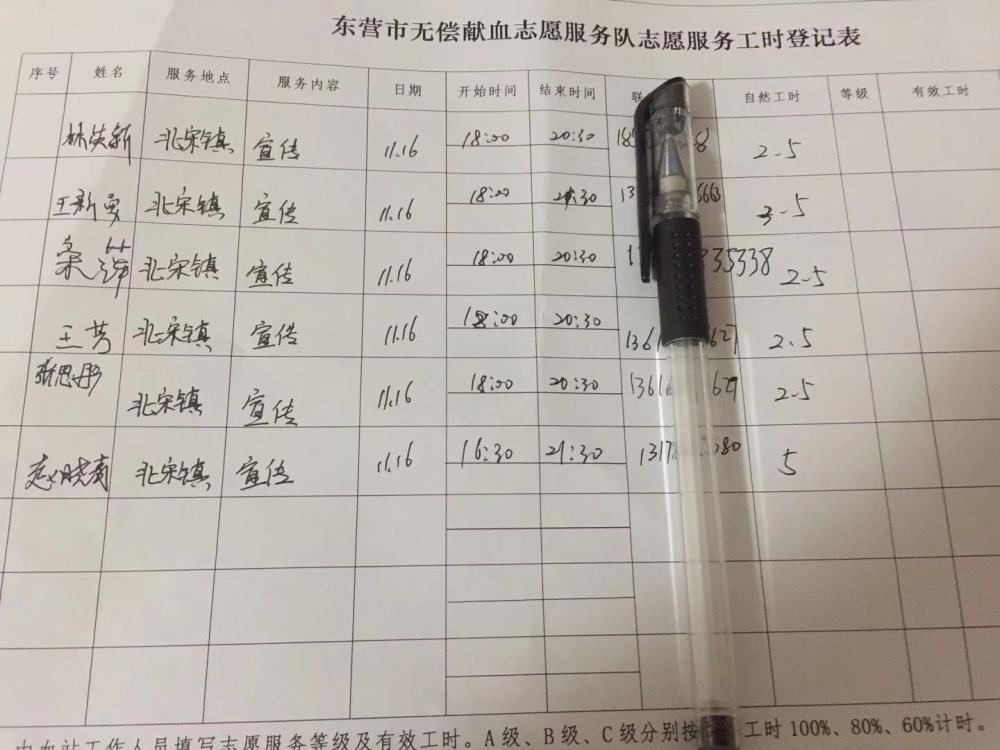 东营市无偿献血志愿服务队志愿服务工时登记表
序号 姓名 服务地点 服务内容 日期 开始时间 结束时间 联 自然工时 等级 有效工时
北宋镇 宣传 11.16 18:00 20:30 8 2.5
王新勇 北宋镇 宣传 11.16 18:00 21:30 13 663 3.5
北宋镇 宣传 11.16 18:00 20:30 1 35338 2.5
王芳 北宋镇 宣传 11.16 18:00 20:30 136 627 2.5
张思彤 北宋镇 宣传 11.16 18:00 20:30 1361 629 2.5
赵晓 北宋镇 宣传 11.16 16:30 21:30 1317 080 5
血站工作人员填写志愿服务等级及有效工时。A级、B级、C级分别按 工时100%、80%、60%计时。